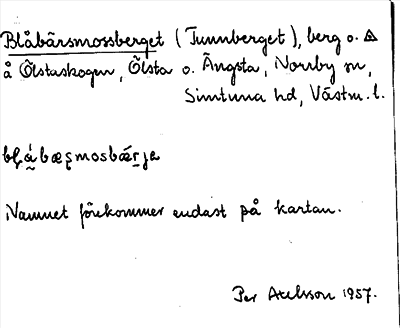 Blåbärsmossberget (Tunnberget), berg o. △
å Ölstaskogen, Ölsta o. Ängsta, Norrby sn,
Simtuna hd, Västm. l.
Namnet förekommer endast på kartan.
Per Axelsson 1957.